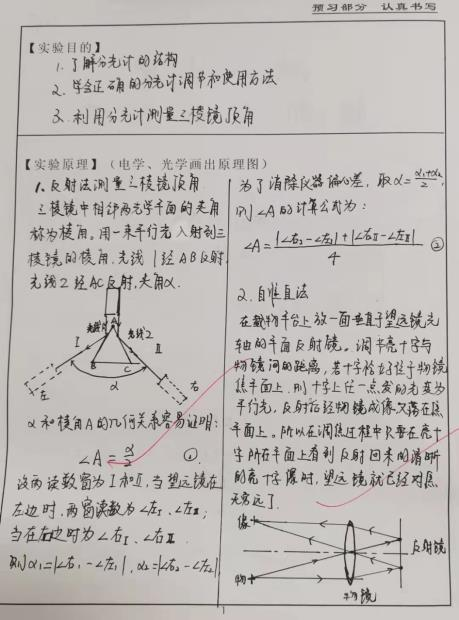 预习部分 认真书写
【实验目的】
1. 了解分光计的结构
2. 学会正确的分光计调节和使用方法
3. 利用分光计测量三棱镜顶角
【实验原理】（电学、光学画出原理图）
1. 反射法测量三棱镜顶角
三棱镜中相邻两光学平面的夹角
称为棱角。用一束平行光入射到三
棱镜的棱角，光线1经AB反射，
光线2经AC反射，夹角α.
光线1 A 光线2
I II
B C
α
左 右
α和棱角A的几何关系容易证明:
∠A = α/2 ①
设两读数窗为I和II，当望远镜在
左边时，两窗读数为∠左I、∠左II；
当在右边时为∠右I、∠右II
则α₁=|∠右I-∠左I|, α₂=|∠右2-∠左2|
为了消除仪器偏心差，取α=(α₁+α₂)/2,
则∠A的计算公式为:
∠A = (|∠右I-∠左I|+|∠右II-∠左II|)/4 ②
2. 自准直法
在载物平台上放一面垂直于望远镜光
轴的平面反射镜。调节亮十字与
物镜间的距离，若十字恰好位于物镜
焦平面上，则十字上任一点发的光变为
平行光，反射后经物镜成像又落在焦
平面上。所以在调焦过程中只要在亮十
字所在平面上看到反射回来的清晰
的亮十字像时，望远镜就已经对焦
无穷远了.
像
物
反射镜
物镜
1